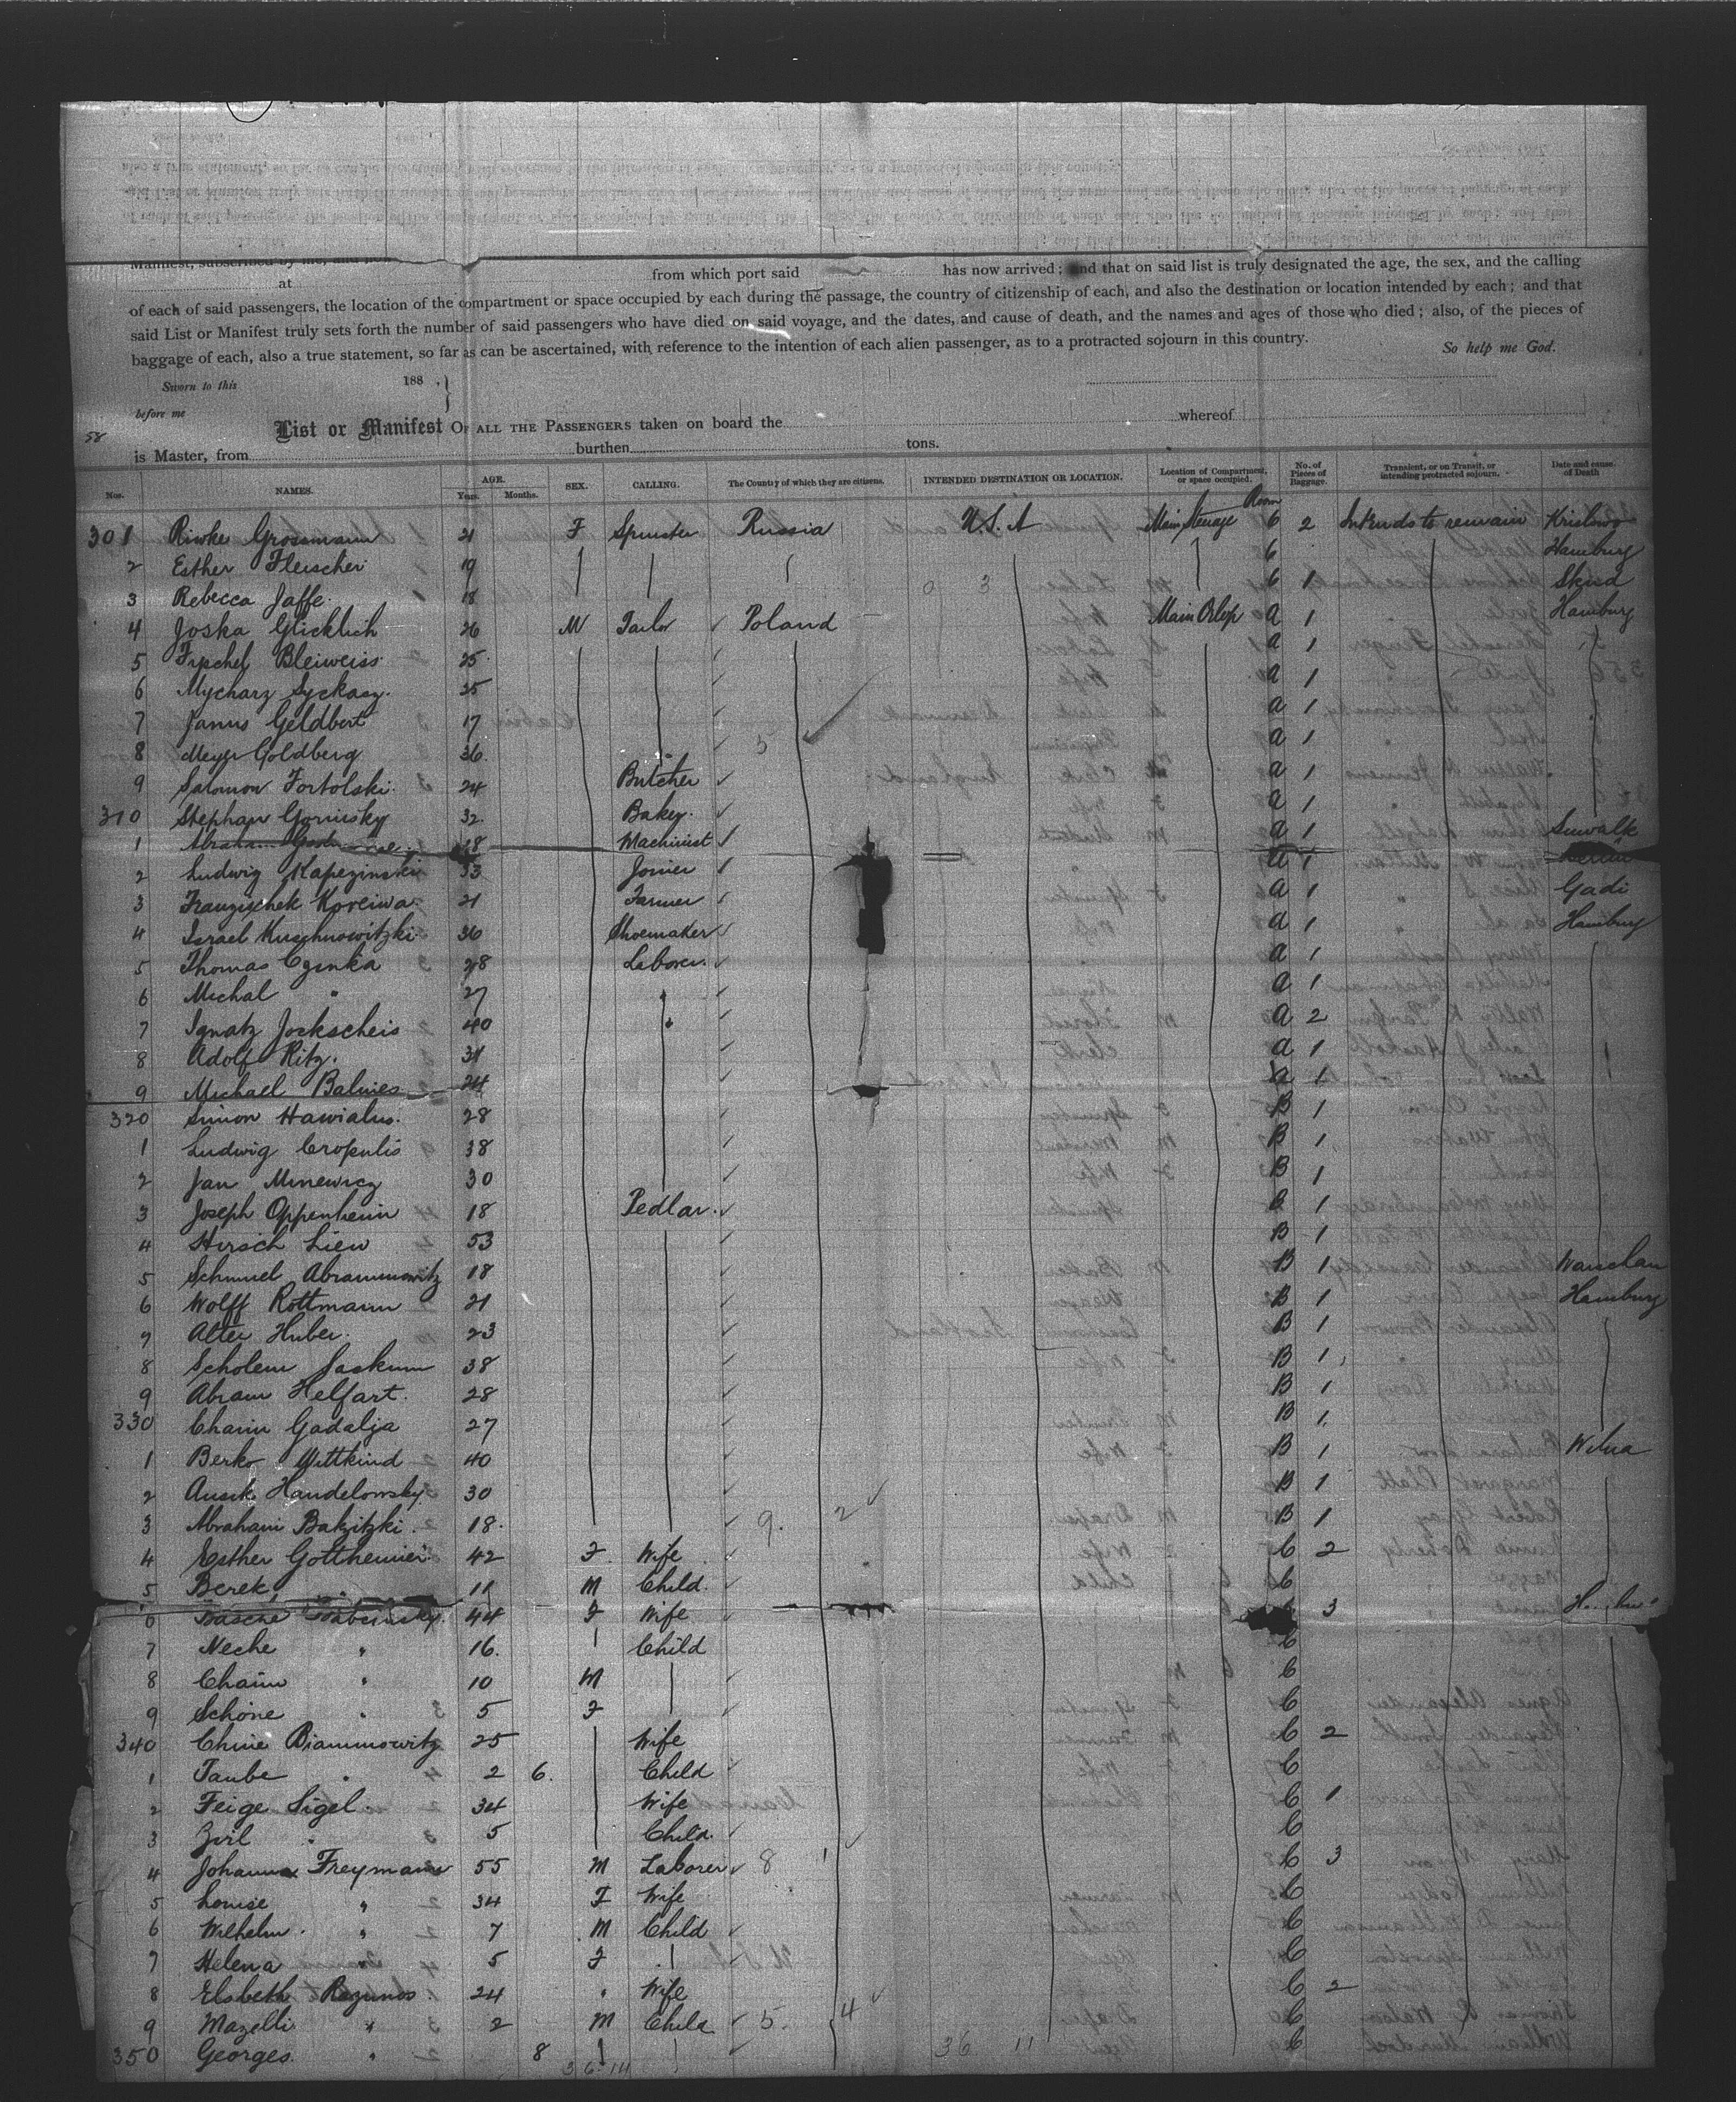 from which port said has now arrived; and that on said list is truly designated the age, the sex, and the calling
at
of each of said passengers, the location of the compartment or space occupied by each during the passage, the country of citizenship of each, and also the destination or location intended by each; and that
said List or Manifest truly sets forth the number of said passengers who have died on said voyage, and the dates, and cause of death, and the names and ages of those who died; also, of the pieces of
baggage of each, also a true statement, so far as can be ascertained, with reference to the intention of each alien passenger, as to a protracted sojourn in this country.
So help me God.
Sworn to this 188
before me
58
List or Manifest OF ALL THE PASSENGERS taken on board the whereof
is Master, from burthen tons.
Nos. NAMES. AGE. Years. Months. SEX. CALLING. The Country of which they are citizens. INTENDED DESTINATION OR LOCATION. Location of Compartment, or space occupied. No. of Pieces of Baggage. Transient, or on Transit, or intending protracted sojourn. Date and cause of Death
Room
301 Riwke Grossmann 21 F Spinster Russia U.S.A Main Steerage 6 2 Intends to remain
2 Esther Fleischer 19 6 Hamburg
3 Rebecca Jaffe 18 6 1 Skud
4 Joska Glicklich 26 M Tailor Poland Main Orlop A 1 Hamburg
5 Fyschel Bleiweiss 25 A 1
6 Mycharz Syckasz 25 A 1
7 Janus Geldbert 17 A 1
8 Meyer Goldberg 36 5 A 1
9 Salomon Tortolski 24 Butcher A 1
310 Stephan Gorinsky 32 Baker A 1
1 18 Machinist A 1 Suwalk
2 Ludwig Kapezinski 33 Joiner A 1
3 Franzischek Koreiwa 21 Farmer A 1 Gadi
4 Israel Kuschnowitzki 36 Shoemaker A 1 Hamburg
5 Thomas Czinka 28 Laborer A 1
6 Michal " 27 A 1
7 Ignatz Jockscheis 40 A 2
8 Adolf Ritz 31 A 1
9 Michael Balnies 24 A 1
320 Simon Hawialis 28 B 1
1 Ludwig Cropulis 38 B 1
2 Jan Minewicz 30 B 1
3 Joseph Oppenheim 18 Pedlar B 1
4 Hirsch Liew 53 B 1
5 Schmuel Abrammowitz 18 B 1
6 Wolff Rottmann 21 B 1 Hamburg
7 Alter Huber 23 B 1
8 Scholem Jaskum 38 B 1
9 Abram Helfart 28 B 1
330 Chaim Gadalja 27 B 1
1 Berko Wittkind 40 B 1 Wilna
2 Ausik Handelowsky 30 2 B 1
3 Abraham Bakzitzki 18 9 B 1
4 Esther Gottheimer 42 F Wife C 2
5 Berek " 11 M Child C
6 Basche 44 F Wife 3
7 Neche " 16 Child C
8 Chaim " 10 M C
9 Schöne " 5 F C
340 Chine Biammowitz 25 Wife C 2
1 Taube " 2 6 Child C
2 Feige Sigel 34 Wife C 1
3 Zivil " 5 Child C
4 Johann Freymann 55 M Laborer 8 1 C 3
5 Louise " 34 F Wife C
6 Wilhelm " 7 M Child C
7 Helena " 5 F C
8 Elsbeth Rozunos 24 " Wife C 2
9 Mazelli " 2 M Child 5 4 C
350 Georges " 8 36 11 C
36 14